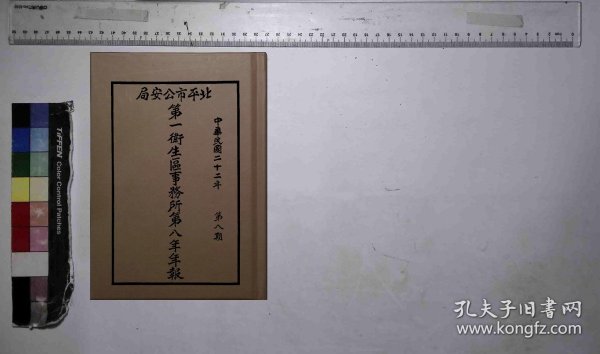 北平市公安局
第一衛生區事務所第八年年報
中華民國二十二年
第八期
TIFFEN Color Control Patches
孔夫子旧书网
www.kongfz.com